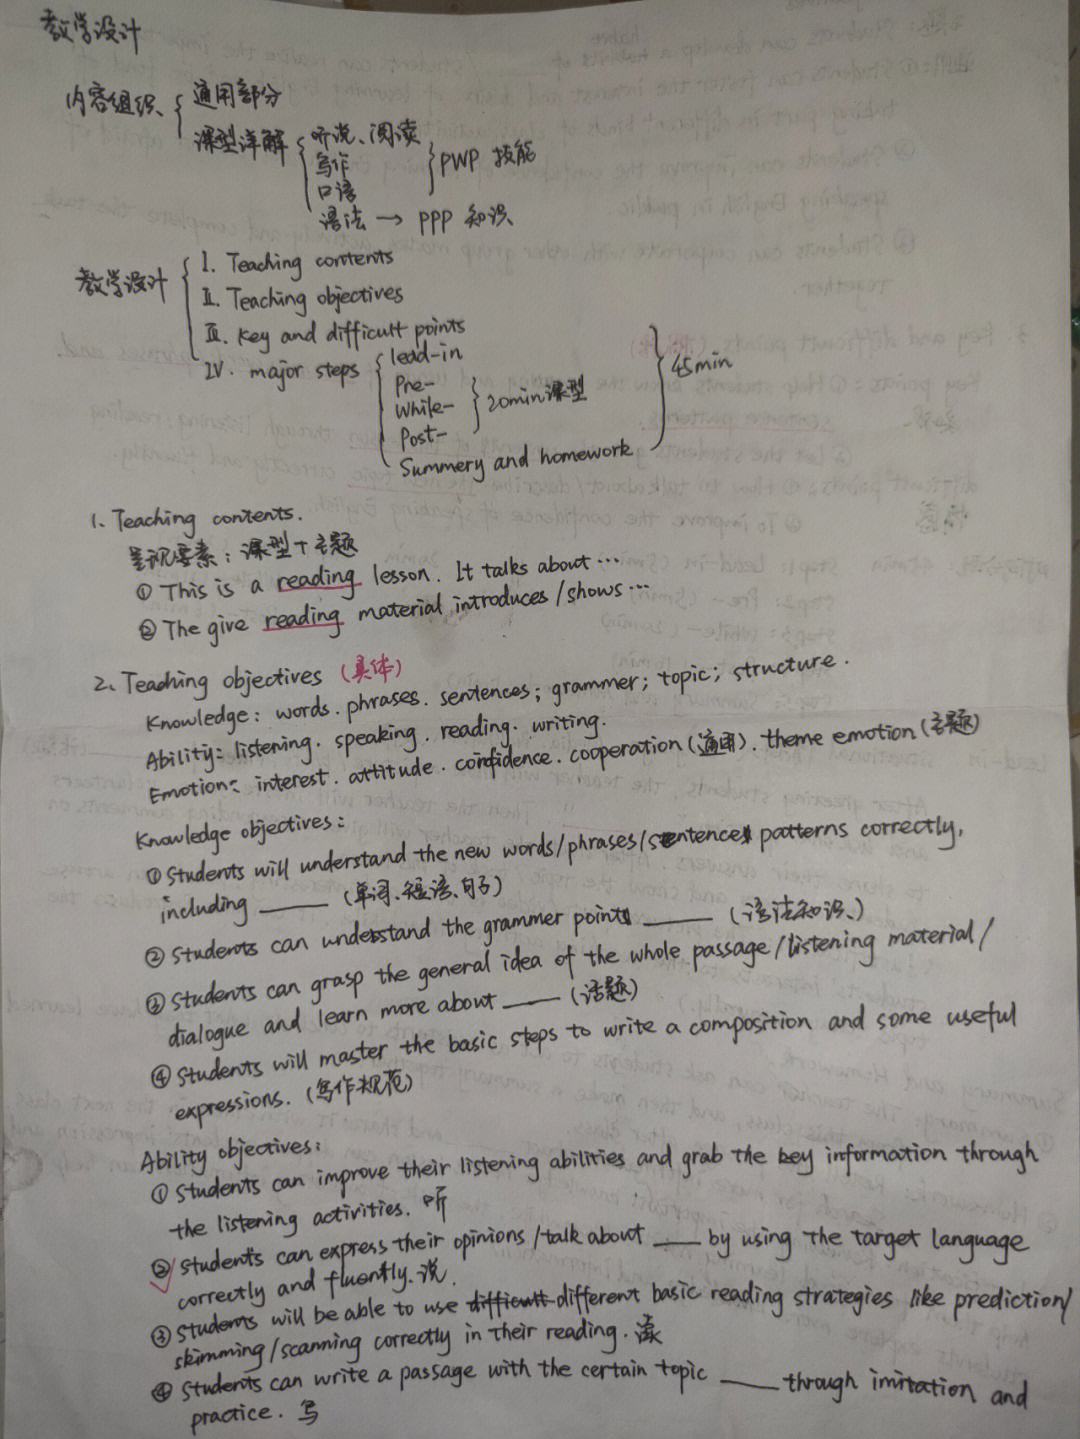 教学设计
内容组织 { 通用部分
课型详解 { 听说、阅读
写作
口语 } PWP 技能
语法 → PPP 知识
教学设计 { I. Teaching contents
II. Teaching objectives
III. Key and difficult points
IV. major steps { lead-in
Pre-
While- } 20min课型
Post-
Summery and homework } 45min
1、Teaching contents.
呈现要素：课型+主题
① This is a reading lesson. It talks about …
② The give reading material introduces/shows …
2、Teaching objectives (具体)
Knowledge: words. phrases. sentences; grammer; topic; structure.
Ability: listening. speaking. reading. writing.
Emotion: interest. attitude. confidence. cooperation (通用). theme emotion (主题)
Knowledge objectives:
① Students will understand the new words/phrases/sentence patterns correctly,
including ____ (单词、短语、句子)
② Students can understand the grammer point ____ (语法知识)
③ Students can grasp the general idea of the whole passage/listening material/
dialogue and learn more about ____ (话题)
④ Students will master the basic steps to write a composition and some useful
expressions. (写作规范)
Ability objectives:
① Students can improve their listening abilities and grab the key information through
the listening activities. 听
② Students can express their opinions/talk about ____ by using the target language
correctly and fluently. 说.
③ Students will be able to use difficult different basic reading strategies like prediction/
skimming/scanning correctly in their reading. 读
④ Students can write a passage with the certain topic ____ through imitation and
practice. 写